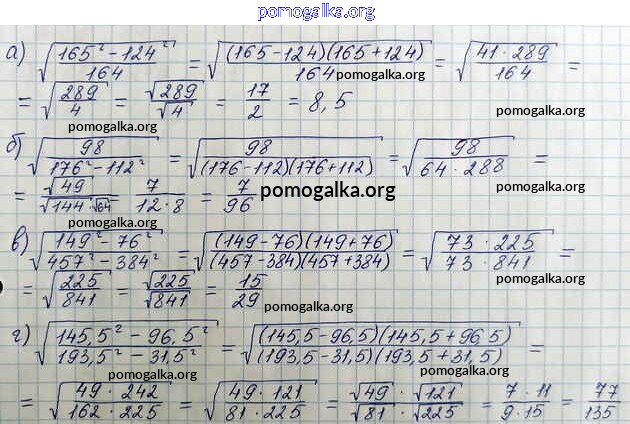 pomogalka.org
а) √((165² − 124²)/164) = √((165−124)(165+124)/164) = √((41 · 289)/164) =
pomogalka.org
= √(289/4) = √289/√4 = 17/2 = 8,5
pomogalka.org
б) √(98/(176² − 112²)) = √(98/((176−112)(176+112))) = √(98/(64 · 288)) =
pomogalka.org
= √49/(√144 · √64) = 7/(12 · 8) = 7/96
pomogalka.org
pomogalka.org
в) √((149² − 76²)/(457² − 384²)) = √((149−76)(149+76)/((457−384)(457+384))) = √((73 · 225)/(73 · 841)) =
pomogalka.org
= √(225/841) = √225/√841 = 15/29
pomogalka.org
г) √((145,5² − 96,5²)/(193,5² − 31,5²)) = √((145,5−96,5)(145,5+96,5)/((193,5−31,5)(193,5+31,5))) =
pomogalka.org
pomogalka.org
= √((49 · 242)/(162 · 225)) = √((49 · 121)/(81 · 225)) = (√49 · √121)/(√81 · √225) = (7 · 11)/(9 · 15) = 77/135